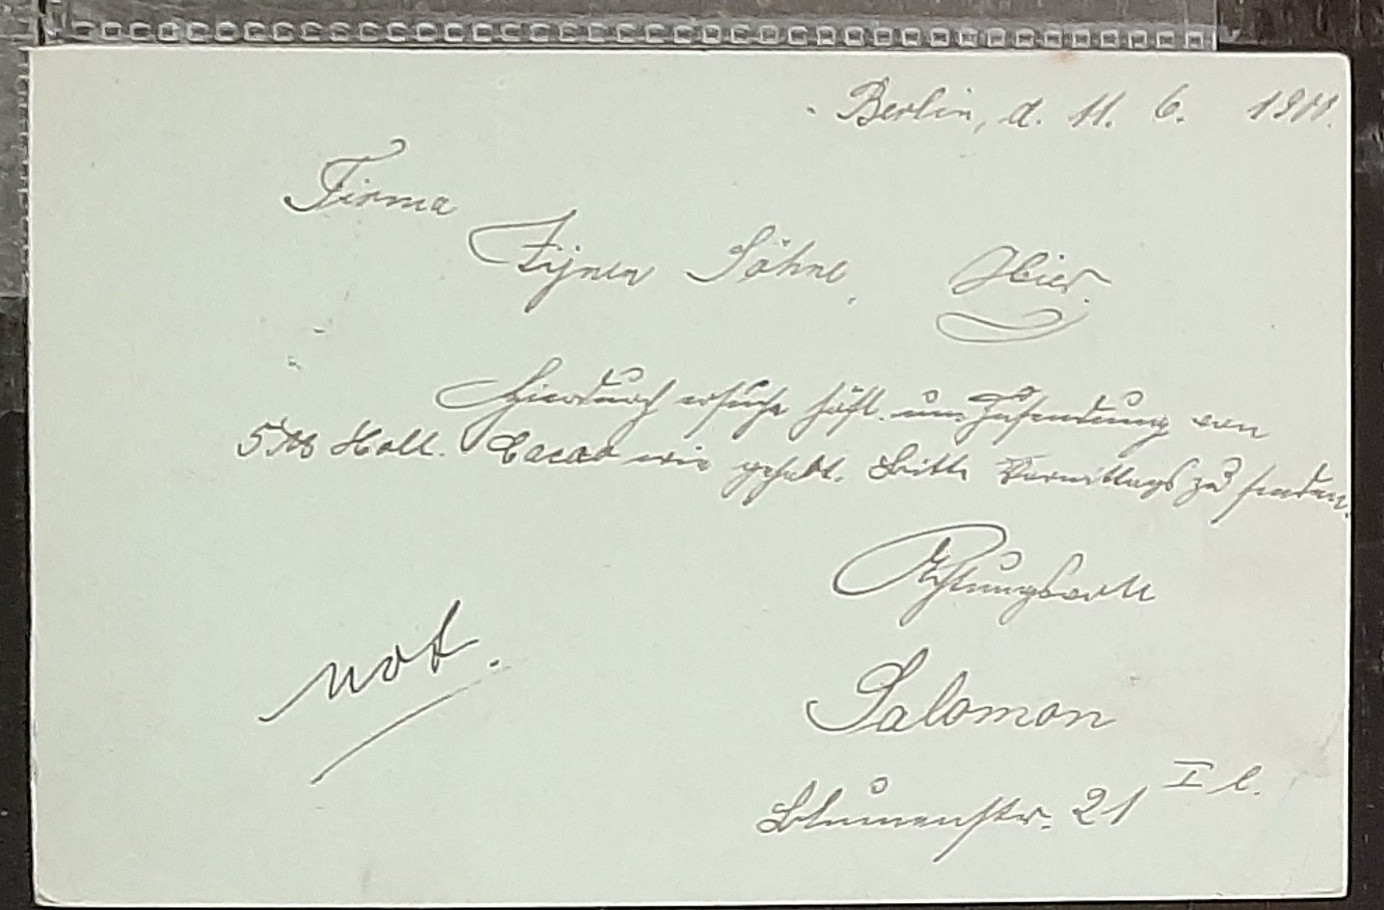 Berlin, d. 11. 6. 1911.
Firma
Tijnen Söhne, Hier.
Hierdurch ersuche höfl. um Zusendung von
5 ℔ Holl. Cacao wie gehabt. Bitte Vormittags zu senden.
Achtungsvoll
not.
Salomon
Blumenstr. 21 I l.